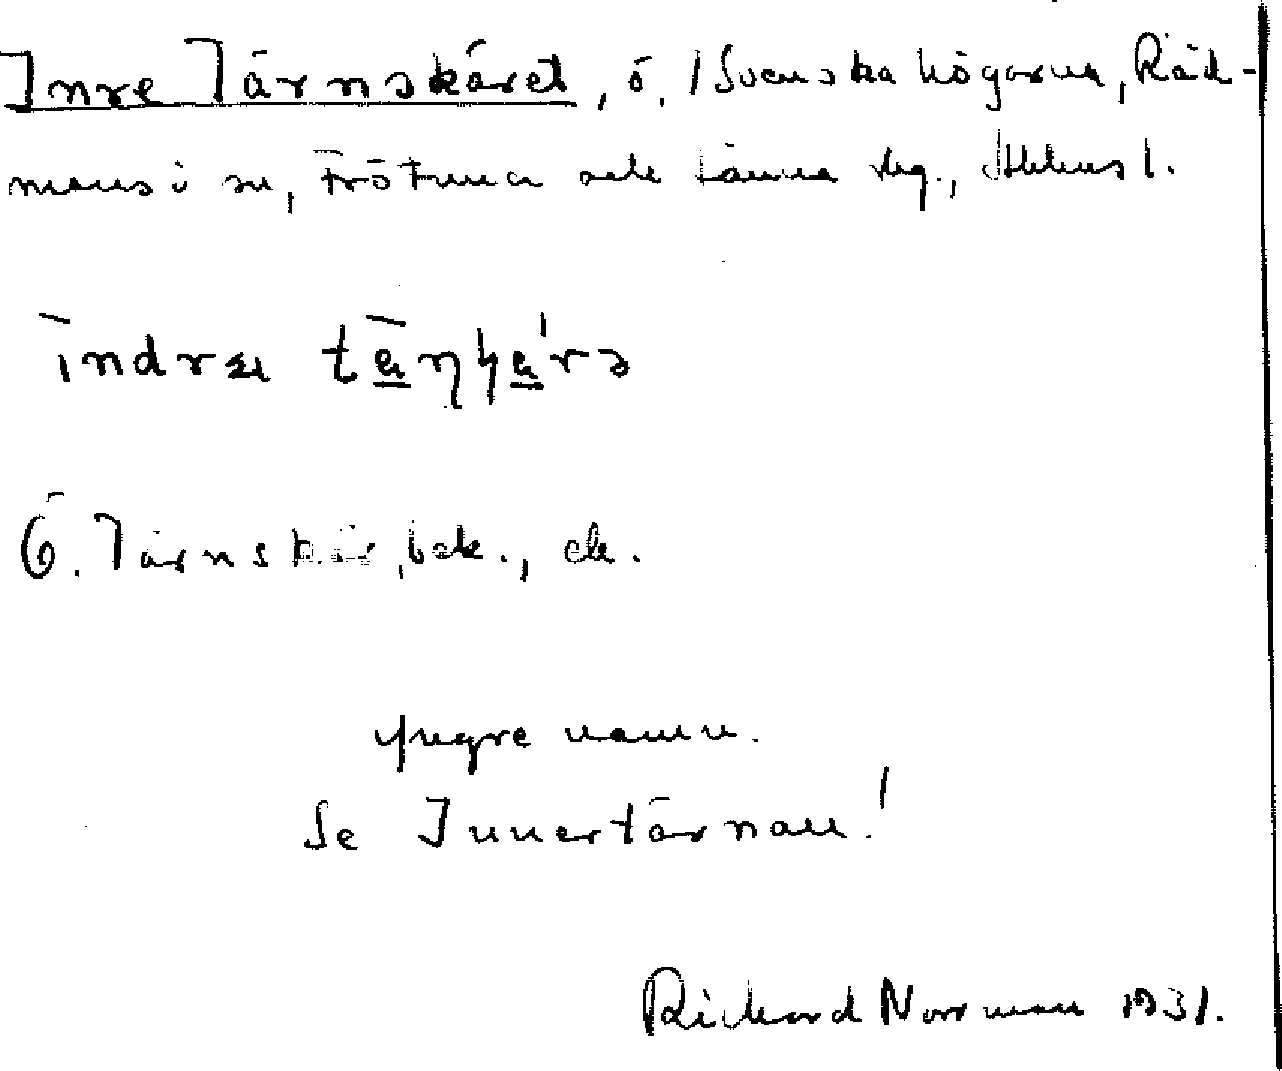 Inre Tärnskäret, ö, i Svenska högarna, Råd-
mansö sn, Frötuna och Länna skg., Sthlms l.
indra
Ö. Tärnskär, bek., ek.
yngre namn.
Se Innertärnan!
Richard Norrman 1931.